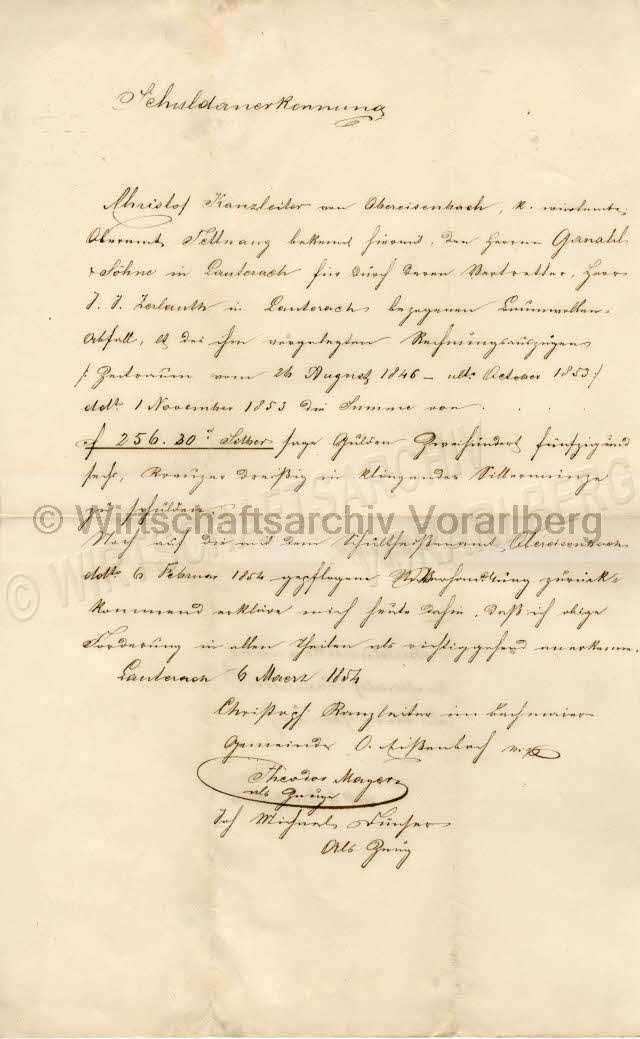 Schuldanerkennung
Christof Kanzleiter von Obereisenbach, k. wirtemb.
Oberamt Tettnang bekennt hiemit, den Herren Ganahl
& Söhne in Lauterach für durch deren Vertretter, Herr
J. J. Zerlauth in Lauterach bezogenen Baumwollen-
Abfall, des ihm vorgelegten Rechnungsauszuges
/: Zeitraum vom 26 August 1846 - ult. October 1853 :/
ddt. 1 November 1853 die Summe von
f 256. 30 Silber, sage Gulden Zweihundert fünfzig und
sechs, Kreuzer dreißig in klingender Silbermünze
zu schulden.
Noch auf die mit dem Schultheißenamt Obereisenbach
ddt. 6 Februar 1854 gepflogene Verhandlung zurück-
kommend erkläre mich heute dahin, daß ich obige
Forderung in allen Theilen als richtiggehend anerkenne.
Lauterach 6 Maerz 1854
Christoph Kanzleiter im bachmaier
Gemeinde O. Eißenbach
Theodor Mayer
als Zeuge
Joh Michael Dünser
Als Zeug
© Wirtschaftsarchiv Vorarlberg
© WIRTSCHAFTSARCHIV VORARLBERG